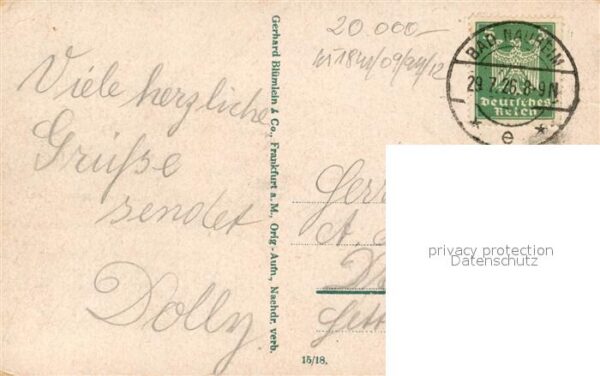 Viele herzliche
Grüße
sendet
Dolly.
Gerhard Blümlein & Co., Frankfurt a. M., Orig-Aufn., Nachdr. verb.
15/18.
20 000.-
BAD NAUHEIM
29.7.26.8-9N
* e *
Deutsches
Reich
Herr
A.
privacy protection
Datenschutz